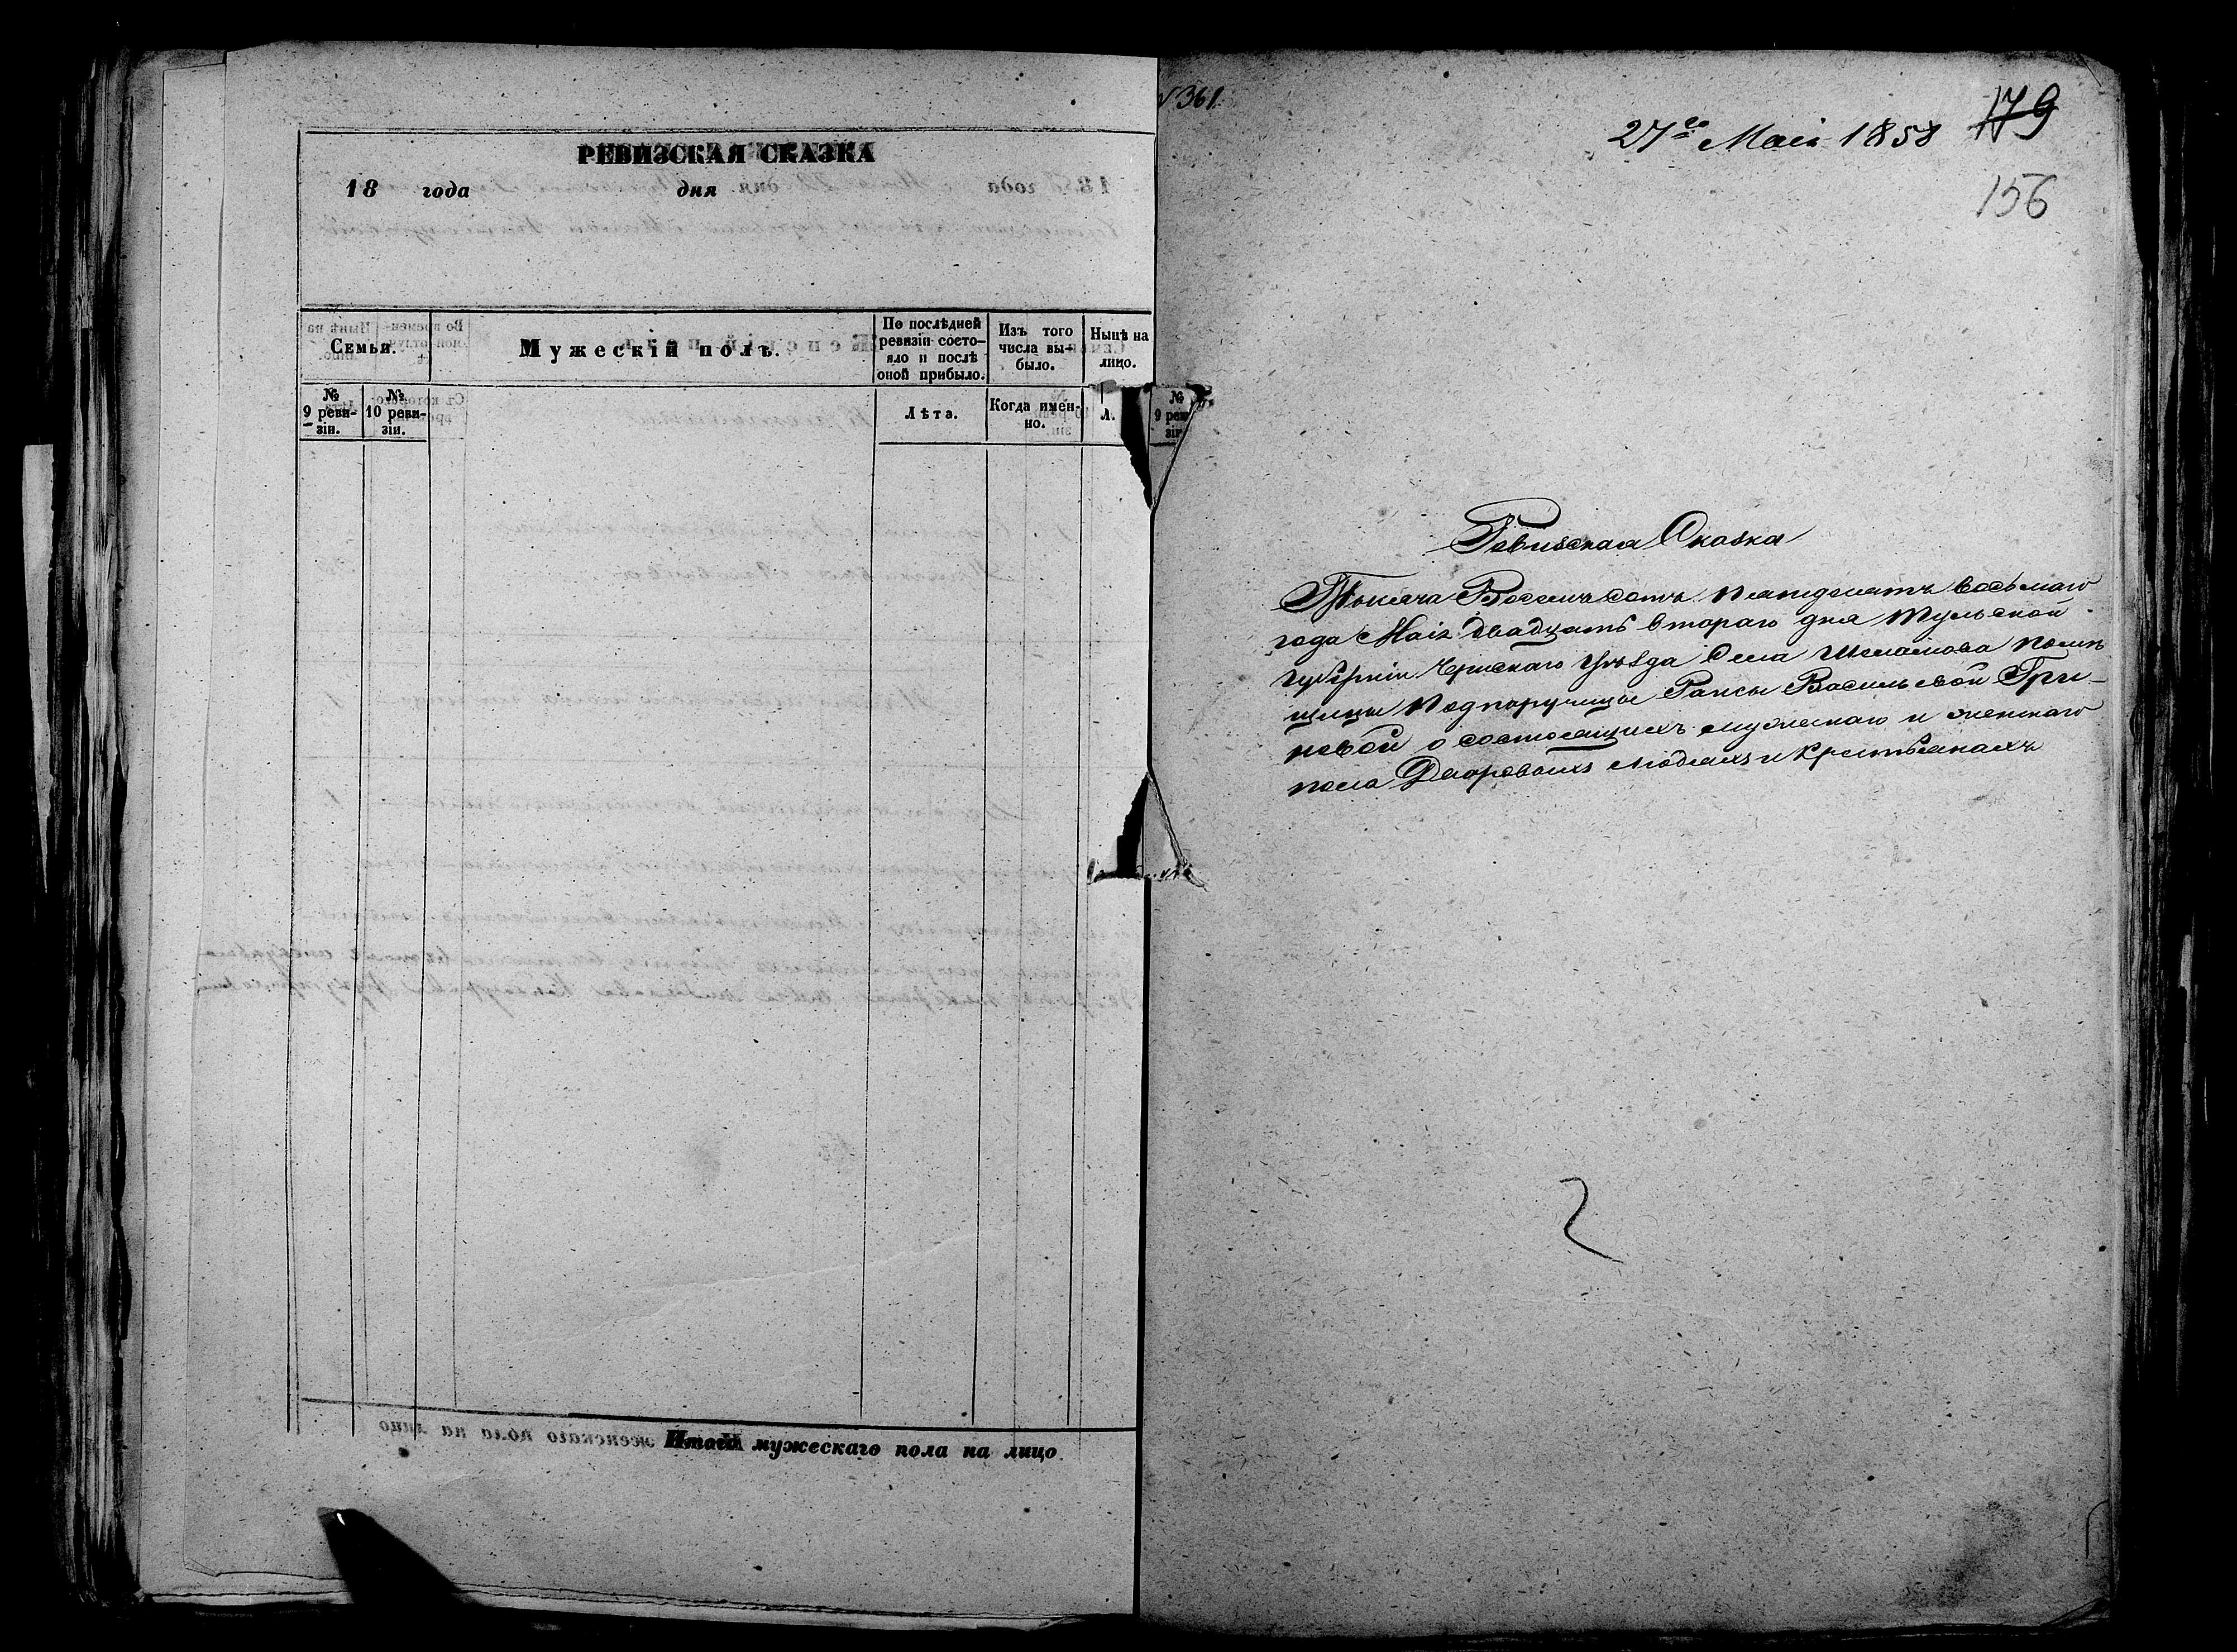 РЕВИЗСКАЯ СКАЗКА
18 года дня
Семьи.
Мужескій полъ.
По послѣдней ревизіи состояло и послѣ оной прибыло.
Изъ того числа выбыло.
Нынѣ на лицо.
№ 9 ревизіи.
№ 10 ревизіи.
Лѣта.
Когда именно.
Л.
№ 9 рев
зі
Итого мужескаго пола на лицо
№361.
27го Маія 1858
179
156
Ревизская Сказка
Тысяча Восемьсотъ Пятдесятъ восьмаго
года Маія двадцать втораго дня Тульской
губерніи Чернскаго Уѣзда Села Шеламова помѣ
щицы Подпоручицы Раисы Васильевой Гри-
невой о состоящихъ мужескаго и женскаго
пола Дворовыхъ людяхъ и Крестьянахъ
2